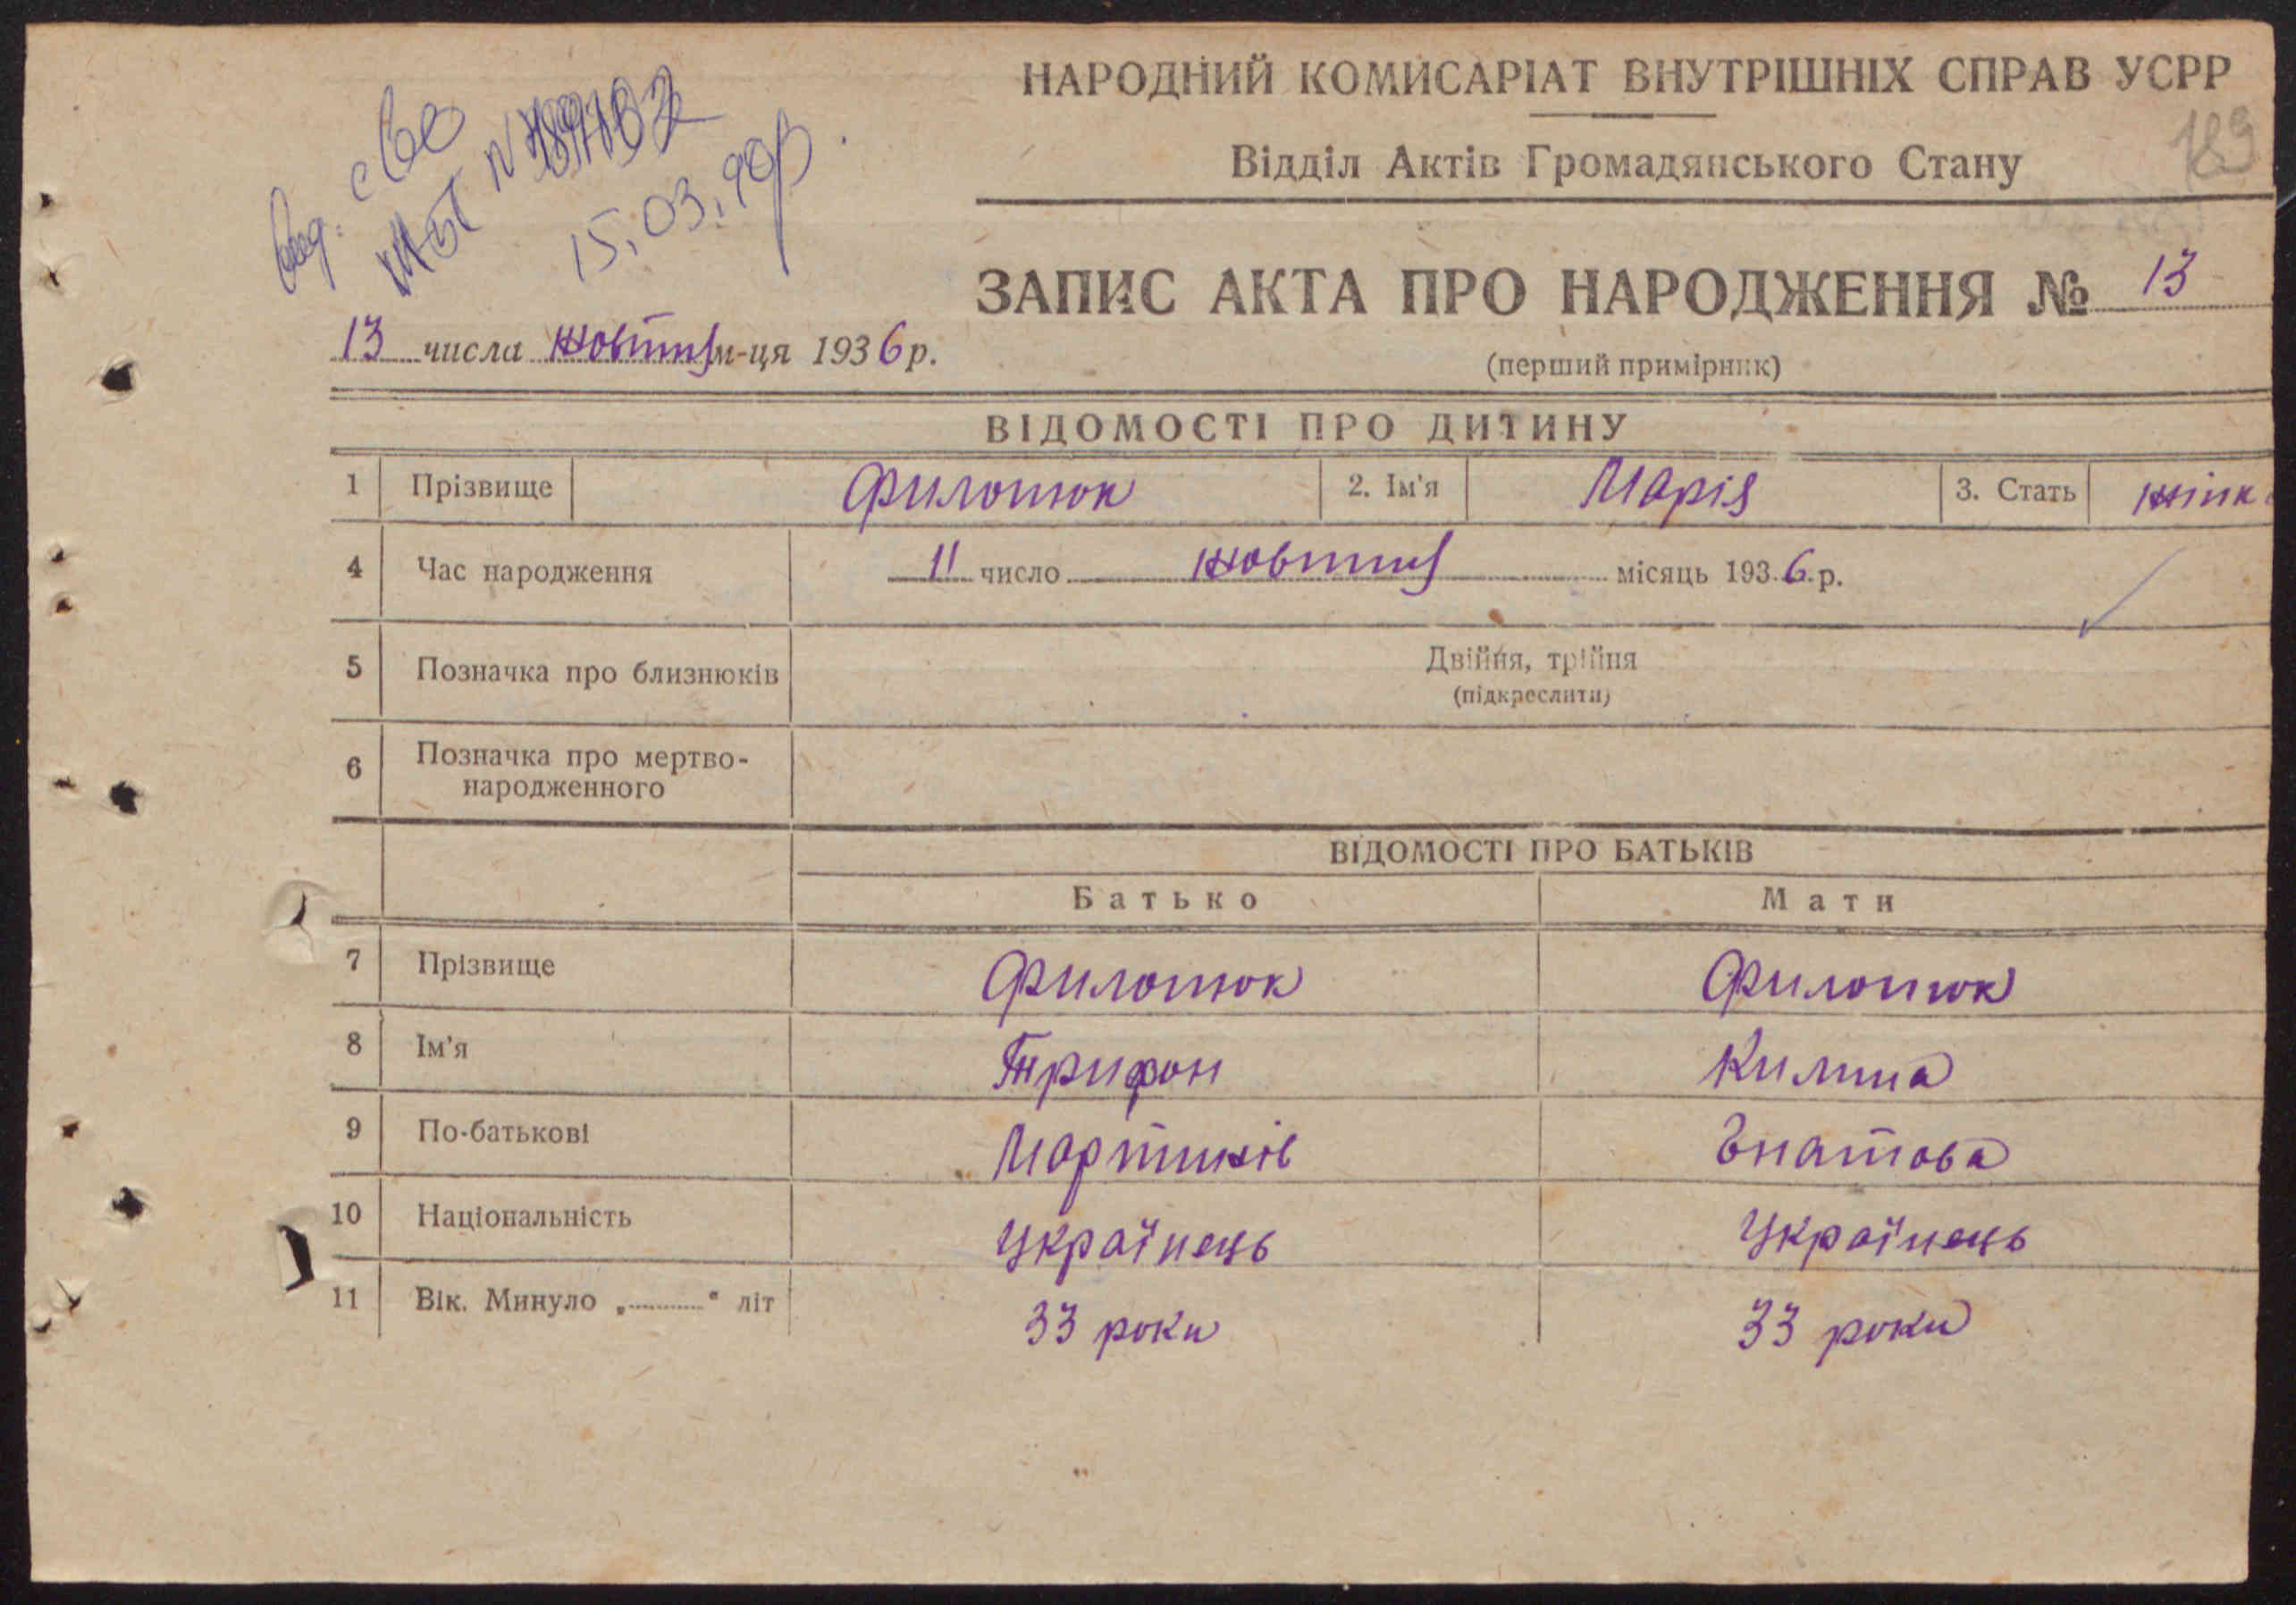 НАРОДНИЙ КОМИСАРІАТ ВНУТРІШНІХ СПРАВ УСРР
189
Відділ Актів Громадянського Стану
вид. сво
15.03.90р.
ЗАПИС АКТА ПРО НАРОДЖЕННЯ № 13
13 числа жовтня м-ця 1936 р.
(перший примірник)
ВІДОМОСТІ ПРО ДИТИНУ
1 Прізвище Филотюк 2. Ім'я Марія 3. Стать жінк
4 Час народження 11 число жовтня місяць 1936 р.
5 Позначка про близнюків Двійня, трійня
(підкреслити)
6 Позначка про мертво-
народженного
ВІДОМОСТІ ПРО БАТЬКІВ
Батько Мати
7 Прізвище Филотюк Филотюк
8 Ім'я Трифон Килина
9 По-батькові Мартинів Гнатова
10 Національність Українець Українець
11 Вік. Минуло „ “ літ 33 роки 33 роки